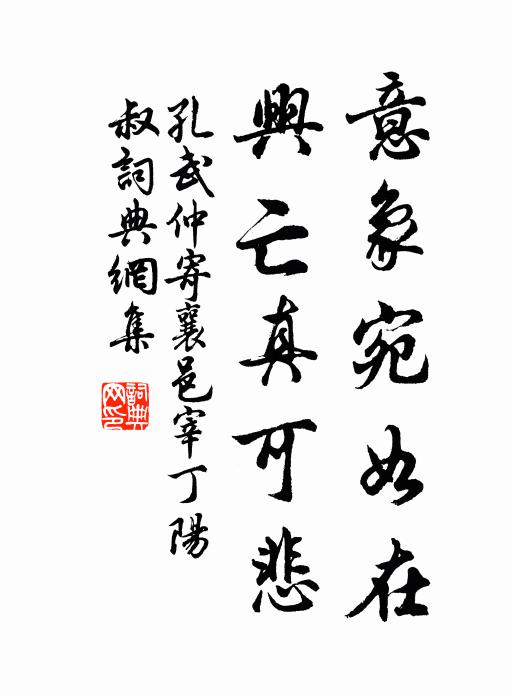 意象宛如在
興亡真可悲
孔武仲寄襄邑宰丁陽
叔詞典網集
詞典網印